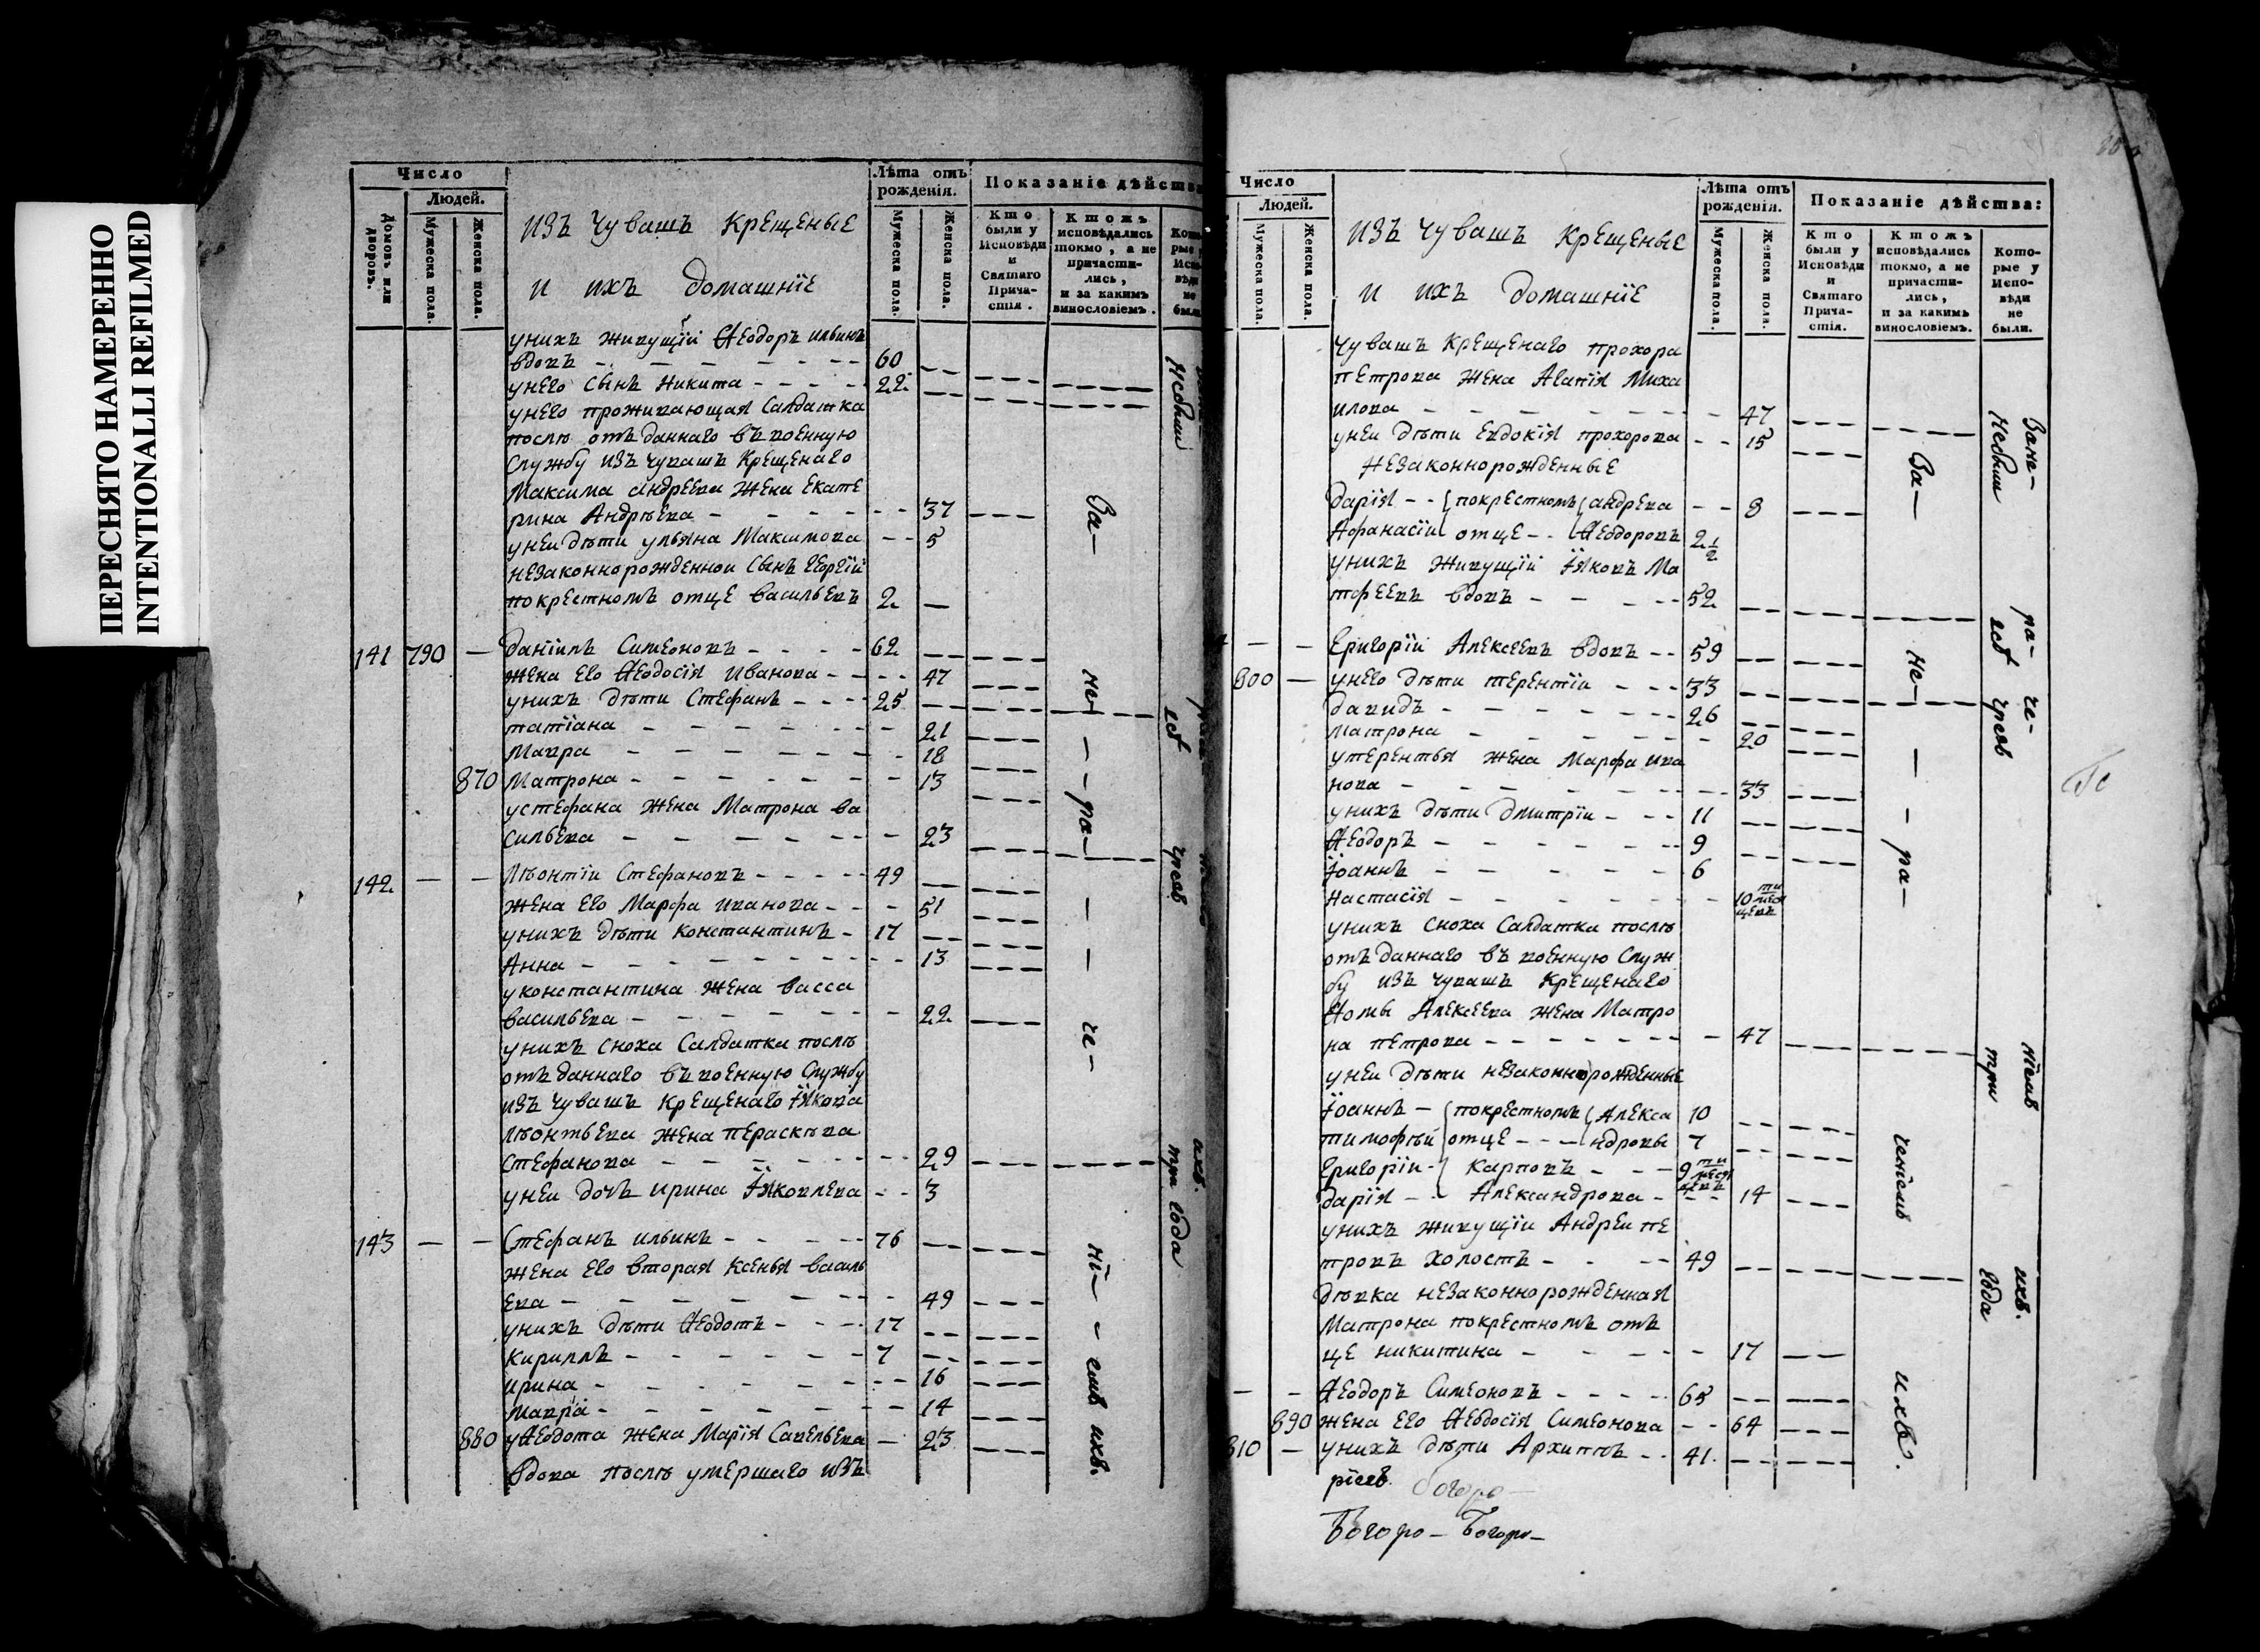 ПЕРЕСНЯТО НАМЕРЕННО
INTENTIONALLI REFILMED
Число
Людей.
Домовъ или дворовъ.
Мужеска пола.
Женска пола.
изъ чувашъ крещеные
и ихъ домашніе
Лѣта отъ рожденія.
Мужеска пола.
Женска пола.
Показаніе дѣйства
Кто были у Исповѣди и Святаго Причастія.
Ктожъ исповѣдались токмо, а не причастились, и за какимъ винословіемъ.
унихъ живущїй Ѳеодоръ ильинъ
вдовъ 60
унего сынъ Никита 22
унего проживающая Салдатка
послѣ отъданнаго въ военную
Службу изъ чувашъ крещенаго
Максима андреева жена екате
рина Андрѣева 37
унеи дѣти ульяна Максимова 5
незаконнорожденнои сынъ Георгїй
покрестномъ отце васильевъ 2
141 790 — данїилъ Симеоновъ 62
жена его Ѳеодосїя иванова 47
унихъ дѣти Стефанъ 25
татїана 21
Мавра 18
870 Матрона 13
устефана жена Матрона ва
сильева 23
142 — — Лѣонтїи Стефановъ 49
жена его Марфа иванова 51
унихъ дѣти константинъ 17
Анна 13
уконстантина жена васса
васильева 22
унихъ сноха Салдатка послѣ
отъданнаго въ военную Службу
изъ чувашъ крещенаго Їякова
Лѣонтьева жена перасковa
Стефанова 29
унеи дочь ирина Їяковлева 3
143 — — Стефанъ ильинъ 76
жена его вторая ксенья василь
ева 49
унихъ дѣти Ѳеодотъ 17
кириллъ 7
ирина 16
Мавра 14
880 уѲеодота жена Марїя Савельева 23
вдова послѣ умершаго изъ
За- не- ра- че- нї- емъ ихъ.
Небыли
три года
Число
Людей.
Мужеска пола.
Женска пола.
изъ чувашъ крещеные
и ихъ домашніе
Лѣта отъ рожденія.
Мужеска пола.
Женска пола.
Показаніе дѣйства:
Кто были у Исповѣди и Святаго Причастія.
Ктожъ исповѣдались токмо, а не причастились, и за какимъ винословіемъ.
Которые у Исповѣди не были.
чувашъ крещенаго прохора
петрова жена Агапїя Миха
илова 47
унеи дѣти евдокїя прохорова 15
незаконнорожденные
дарїя покрестномъ андреева 8
Афанасїи отце Ѳеодоровъ 2 1/2
унихъ живущїи Їяковъ Ма
тфеевъ вдовъ 52
— — Григорїи Алексеевъ вдовъ 59
800 — унего дѣти терентїи 33
давидъ 26
матрона 20
утерентья жена Марфа ива
нова 33
унихъ дѣти дмитрїи 11
Ѳеодоръ 9
Їоаннъ 6
Настасїя 10 ти месяцевъ
унихъ сноха Салдатка послѣ
отъданнаго въ военную служ
бу изъ чувашъ крещенаго
Ѳомы Алексеева жена Матро
на петрова 47
унеи дѣти незаконнорожденные
Їоаннъ покрестномъ Алекса 10
тимофѣй отце ндровы 7
Григорїи карповъ 9 ти месяцевъ
дарїя Александрова 14
унихъ живущїи Андреи пе
тровъ холостъ 49
дѣвка незаконнорожденная
Матрона покрестномъ отъ
це никитина 17
— — Ѳеодоръ Симеоновъ 65
890 жена его Ѳеодосїя Симеонова 64
810 — унихъ дѣти Архиппъ 41
рїевъ
Богоро- Богоро-
За- не- ра- ченїемъ ихъ.
Зане- ра- че- нїемъ ихъ.
Небыли три года